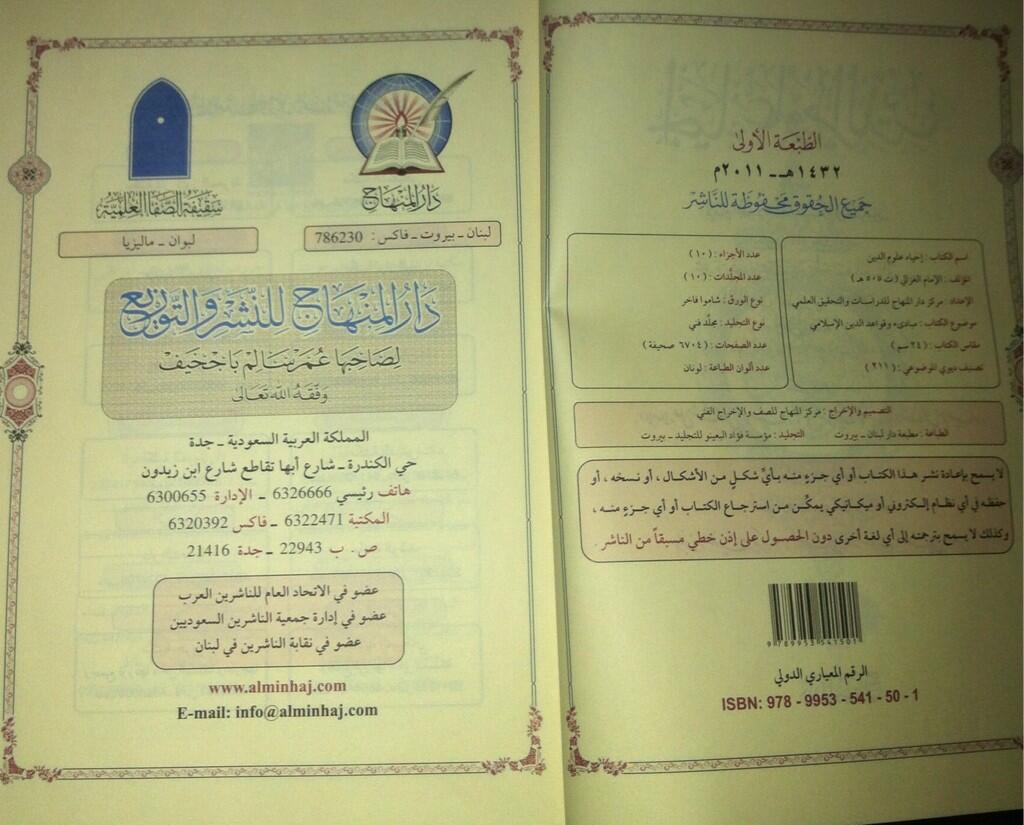 الطبعة الأولى
١٤٣٢هـ - ٢٠١١م
جميع الحقوق محفوظة للناشر
اسم الكتاب : إحياء علوم الدين
المؤلف : الإمام الغزالي ( ت ٥٠٥ هـ )
الإعداد : مركز دار المنهاج للدراسات والتحقيق العلمي
موضوع الكتاب : مبادىء وقواعد الدين الإسلامي
مقاس الكتاب : ( ٢٤ سم )
تصنيف ديوي الموضوعي : ( ٢١١ )
عدد الأجزاء : ( ١٠ )
عدد المجلدات : ( ١٠ )
نوع الورق : شاموا فاخر
نوع التجليد : مجلد فني
عدد الصفحات : ( ٦٧٠٤ صحيفة )
عدد ألوان الطباعة : لونان
التصميم والإخراج : مركز المنهاج للصف والإخراج الفني
الطباعة : مطبعة دار لبنان - بيروت التجليد : مؤسسة فؤاد البعينو للتجليد - بيروت
لا يسمح بإعادة نشر هذا الكتاب أو أي جزء منه بأيِّ شكلٍ من الأشكال ، أو نسخه ، أو
حفظه في أي نظام إلكتروني أو ميكانيكي يمكّن من استرجاع الكتاب أو أي جزء منه ،
وكذلك لا يسمح بترجمته إلى أي لغة أخرى دون الحصول على إذن خطي مسبقاً من الناشر .
9 789953 541501
الرقم المعياري الدولي
ISBN: 978 - 9953 - 541 - 50 - 1
دار المنهاج
لبنان - بيروت - فاكس : 786230
سقيفة الصفا العلمية
لبوان - ماليزيا
دار المنهاج للنشر والتوزيع
لصاحبها عمر سالم باجخيف
وفقه الله تعالى
المملكة العربية السعودية - جدة
حي الكندرة - شارع أبها تقاطع شارع ابن زيدون
هاتف رئيسي 6326666 - الإدارة 6300655
المكتبة 6322471 - فاكس 6320392
ص . ب 22943 - جدة 21416
عضو في الاتحاد العام للناشرين العرب
عضو في إدارة جمعية الناشرين السعوديين
عضو في نقابة الناشرين في لبنان
www.alminhaj.com
E-mail: info@alminhaj.com